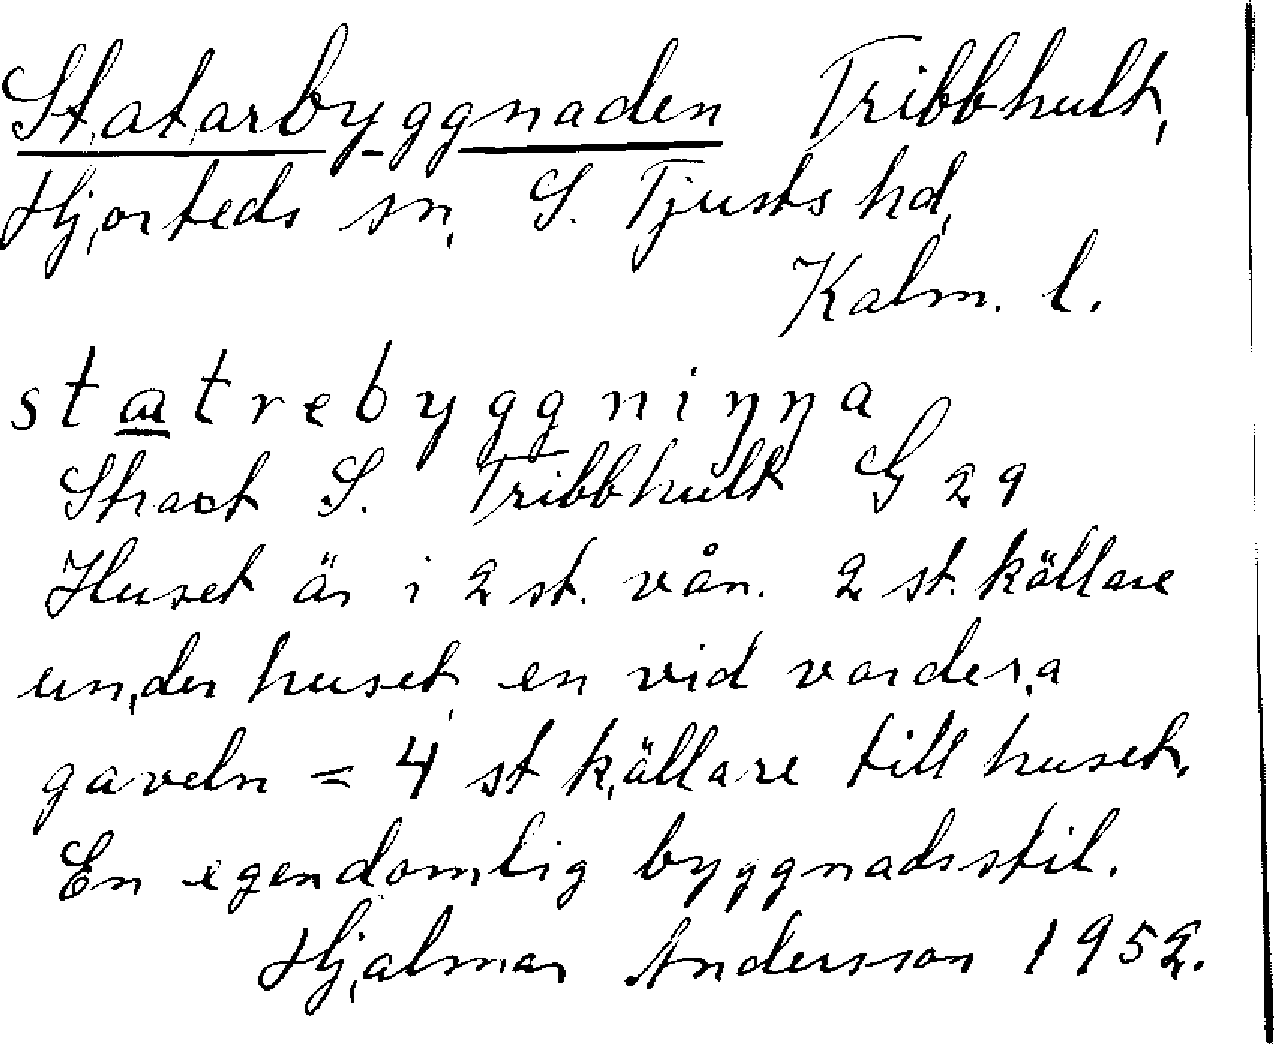 Statarbyggnaden Tribbhult,
Hjorteds sn, S. Tjusts hd,
Kalm. l.
statrebyggniŋŋa
Strax S. Tribbhult G 29
Huset är i 2 st. vån. 2 st. källare
under huset, en vid vardera
gaveln = 4 st källare till huset.
En egendomlig byggnadsstil.
Hjalmar Andersson 1952.